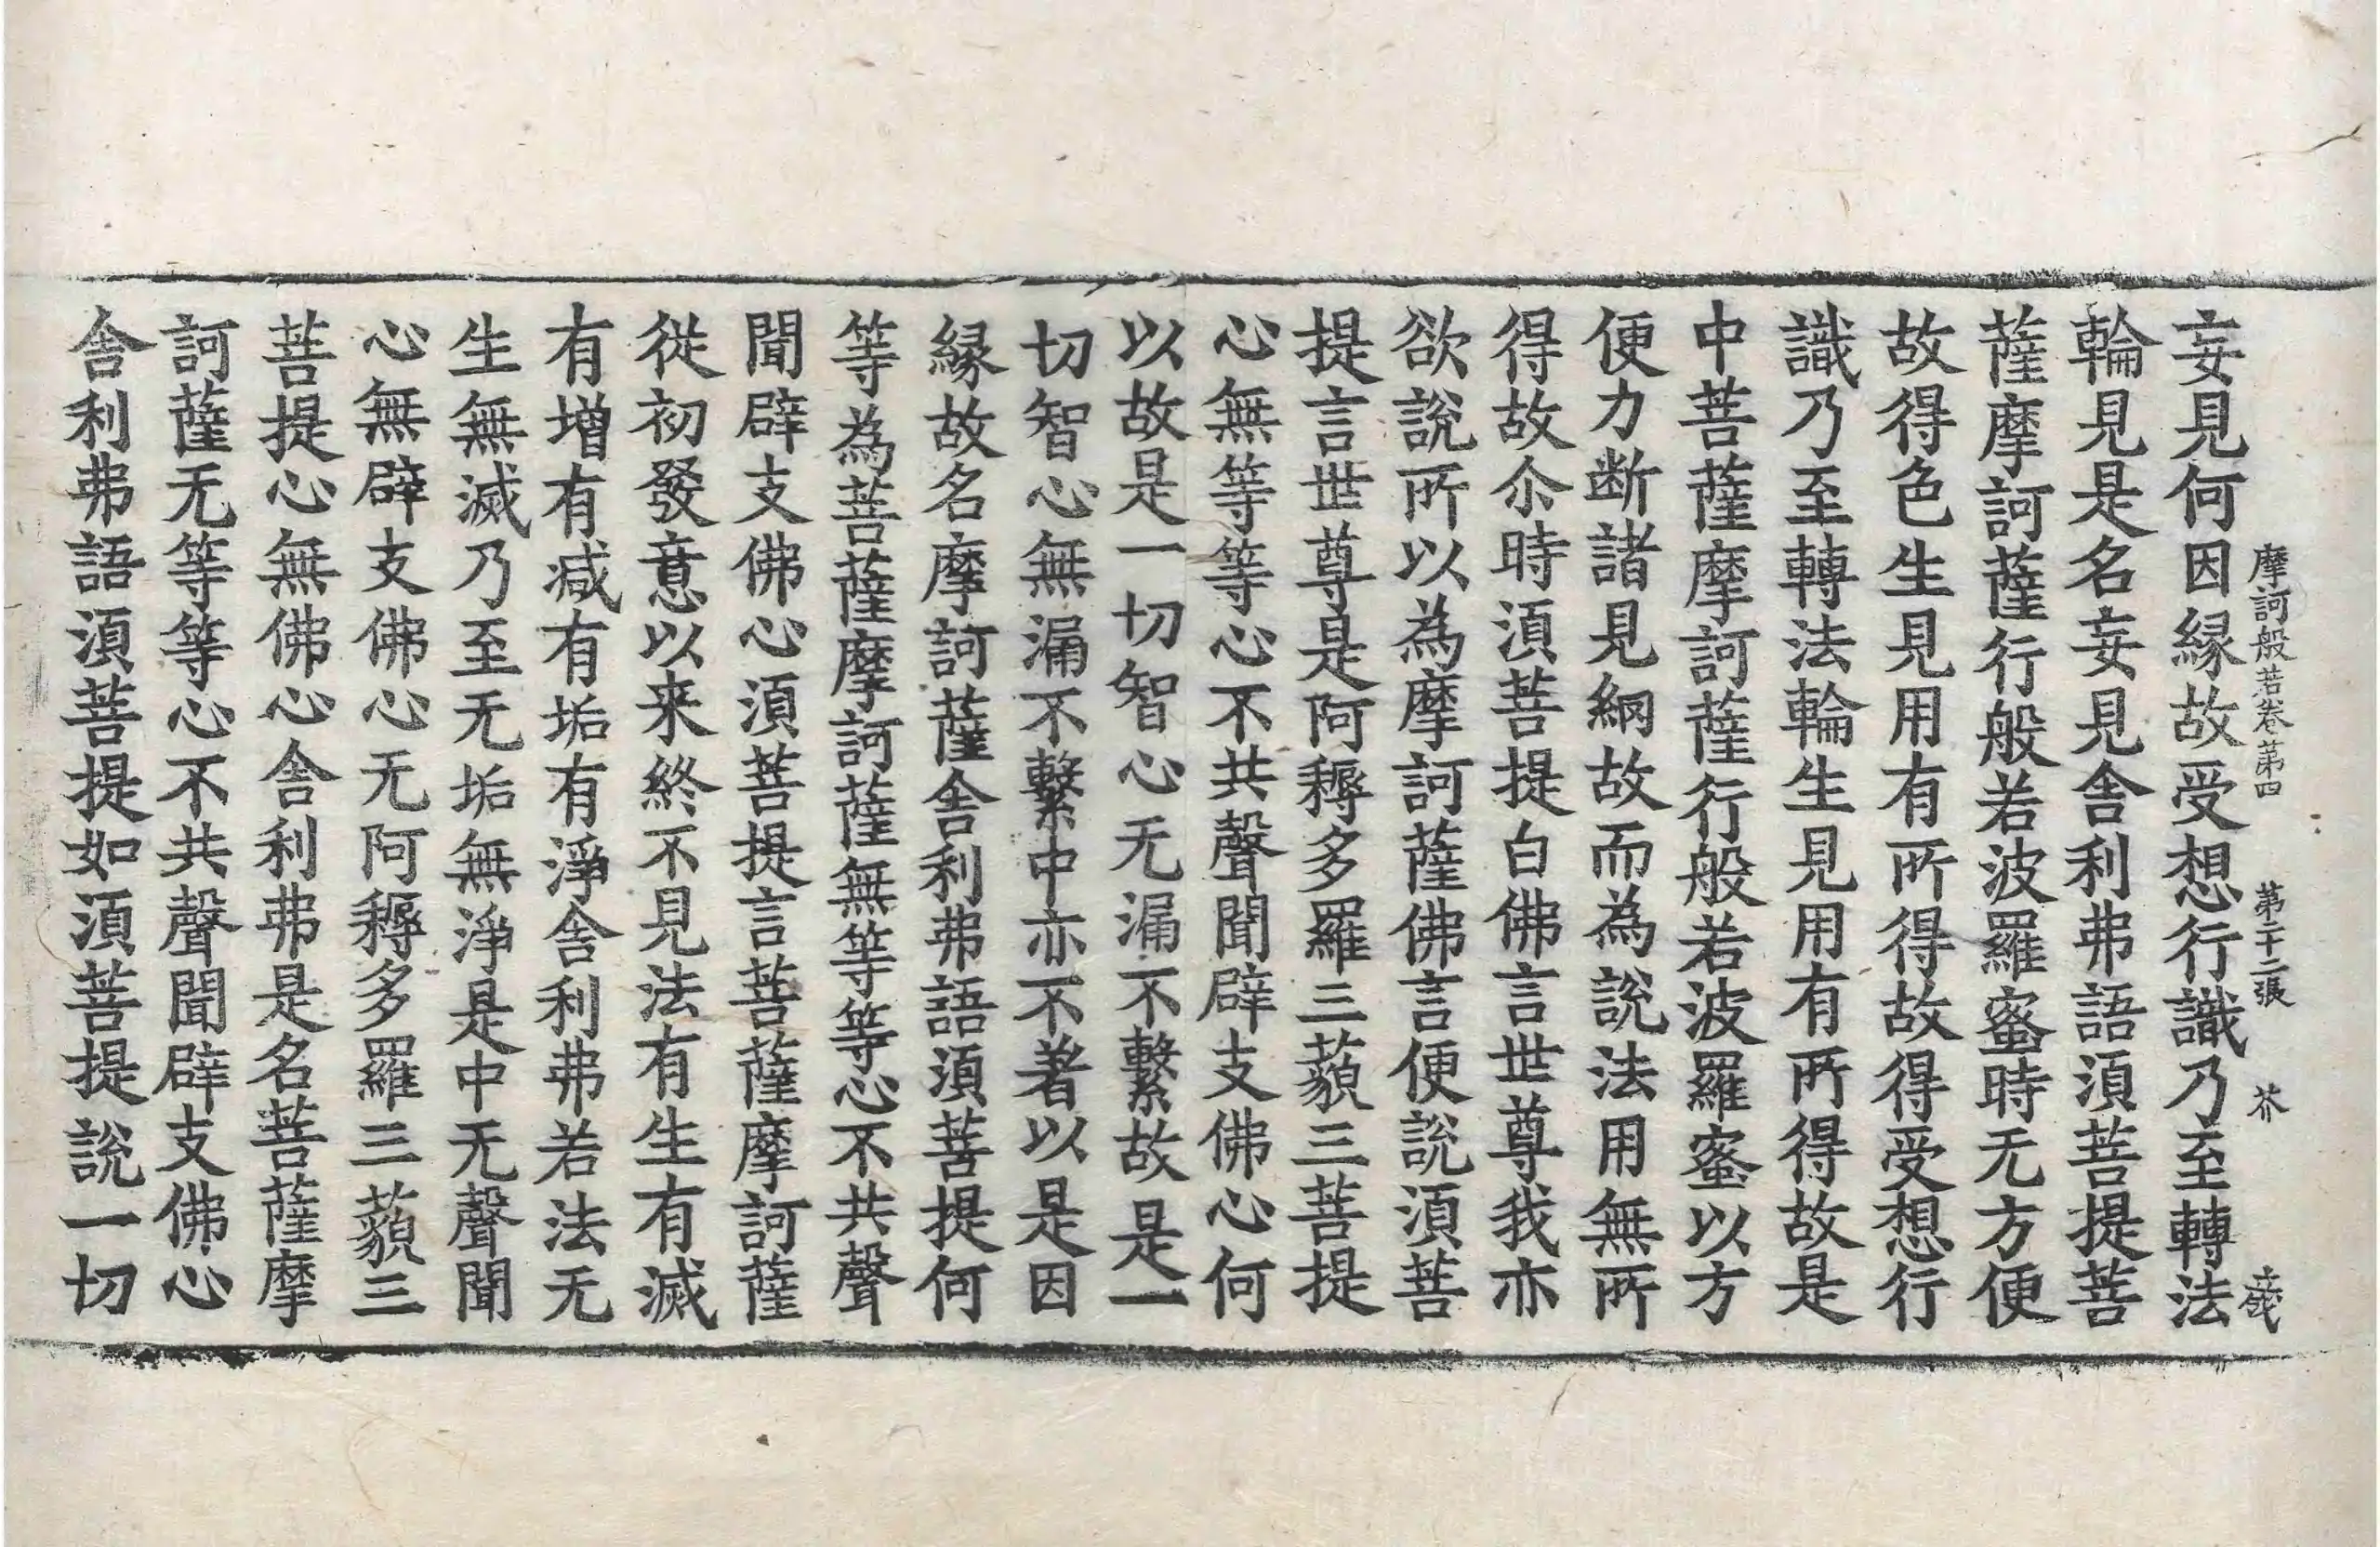 摩訶般若卷第四　第二十二張　芥
妄見何因縁故受想行識乃至轉法
輪見是名妄見舎利弗語湏菩提菩
薩摩訶薩行般若波羅蜜時无方便
故得色生見用有所得故得受想行
識乃至轉法輪生見用有所得故是
中菩薩摩訶薩行般若波羅蜜以方
便力断諸見綱故而為說法用無所
得故尒時湏菩提白佛言世尊我亦
欲說所以為摩訶薩佛言便說湏菩
提言世尊是阿耨多羅三藐三菩提
心無等等心不共聲聞辟支佛心何
以故是一切智心无漏不繫故是一
切智心無漏不繫中亦不著以是因
縁故名摩訶薩舎利弗語湏菩提何
等為菩薩摩訶薩無等等心不共聲
聞辟支佛心湏菩提言菩薩摩訶薩
從初發意以来終不見法有生有滅
有增有减有垢有淨舎利弗若法无
生無滅乃至无垢無淨是中无聲聞
心無辟支佛心无阿耨多羅三藐三
菩提心無佛心舎利弗是名菩薩摩
訶薩无等等心不共聲聞辟支佛心
舎利弗語湏菩提如湏菩提說一切